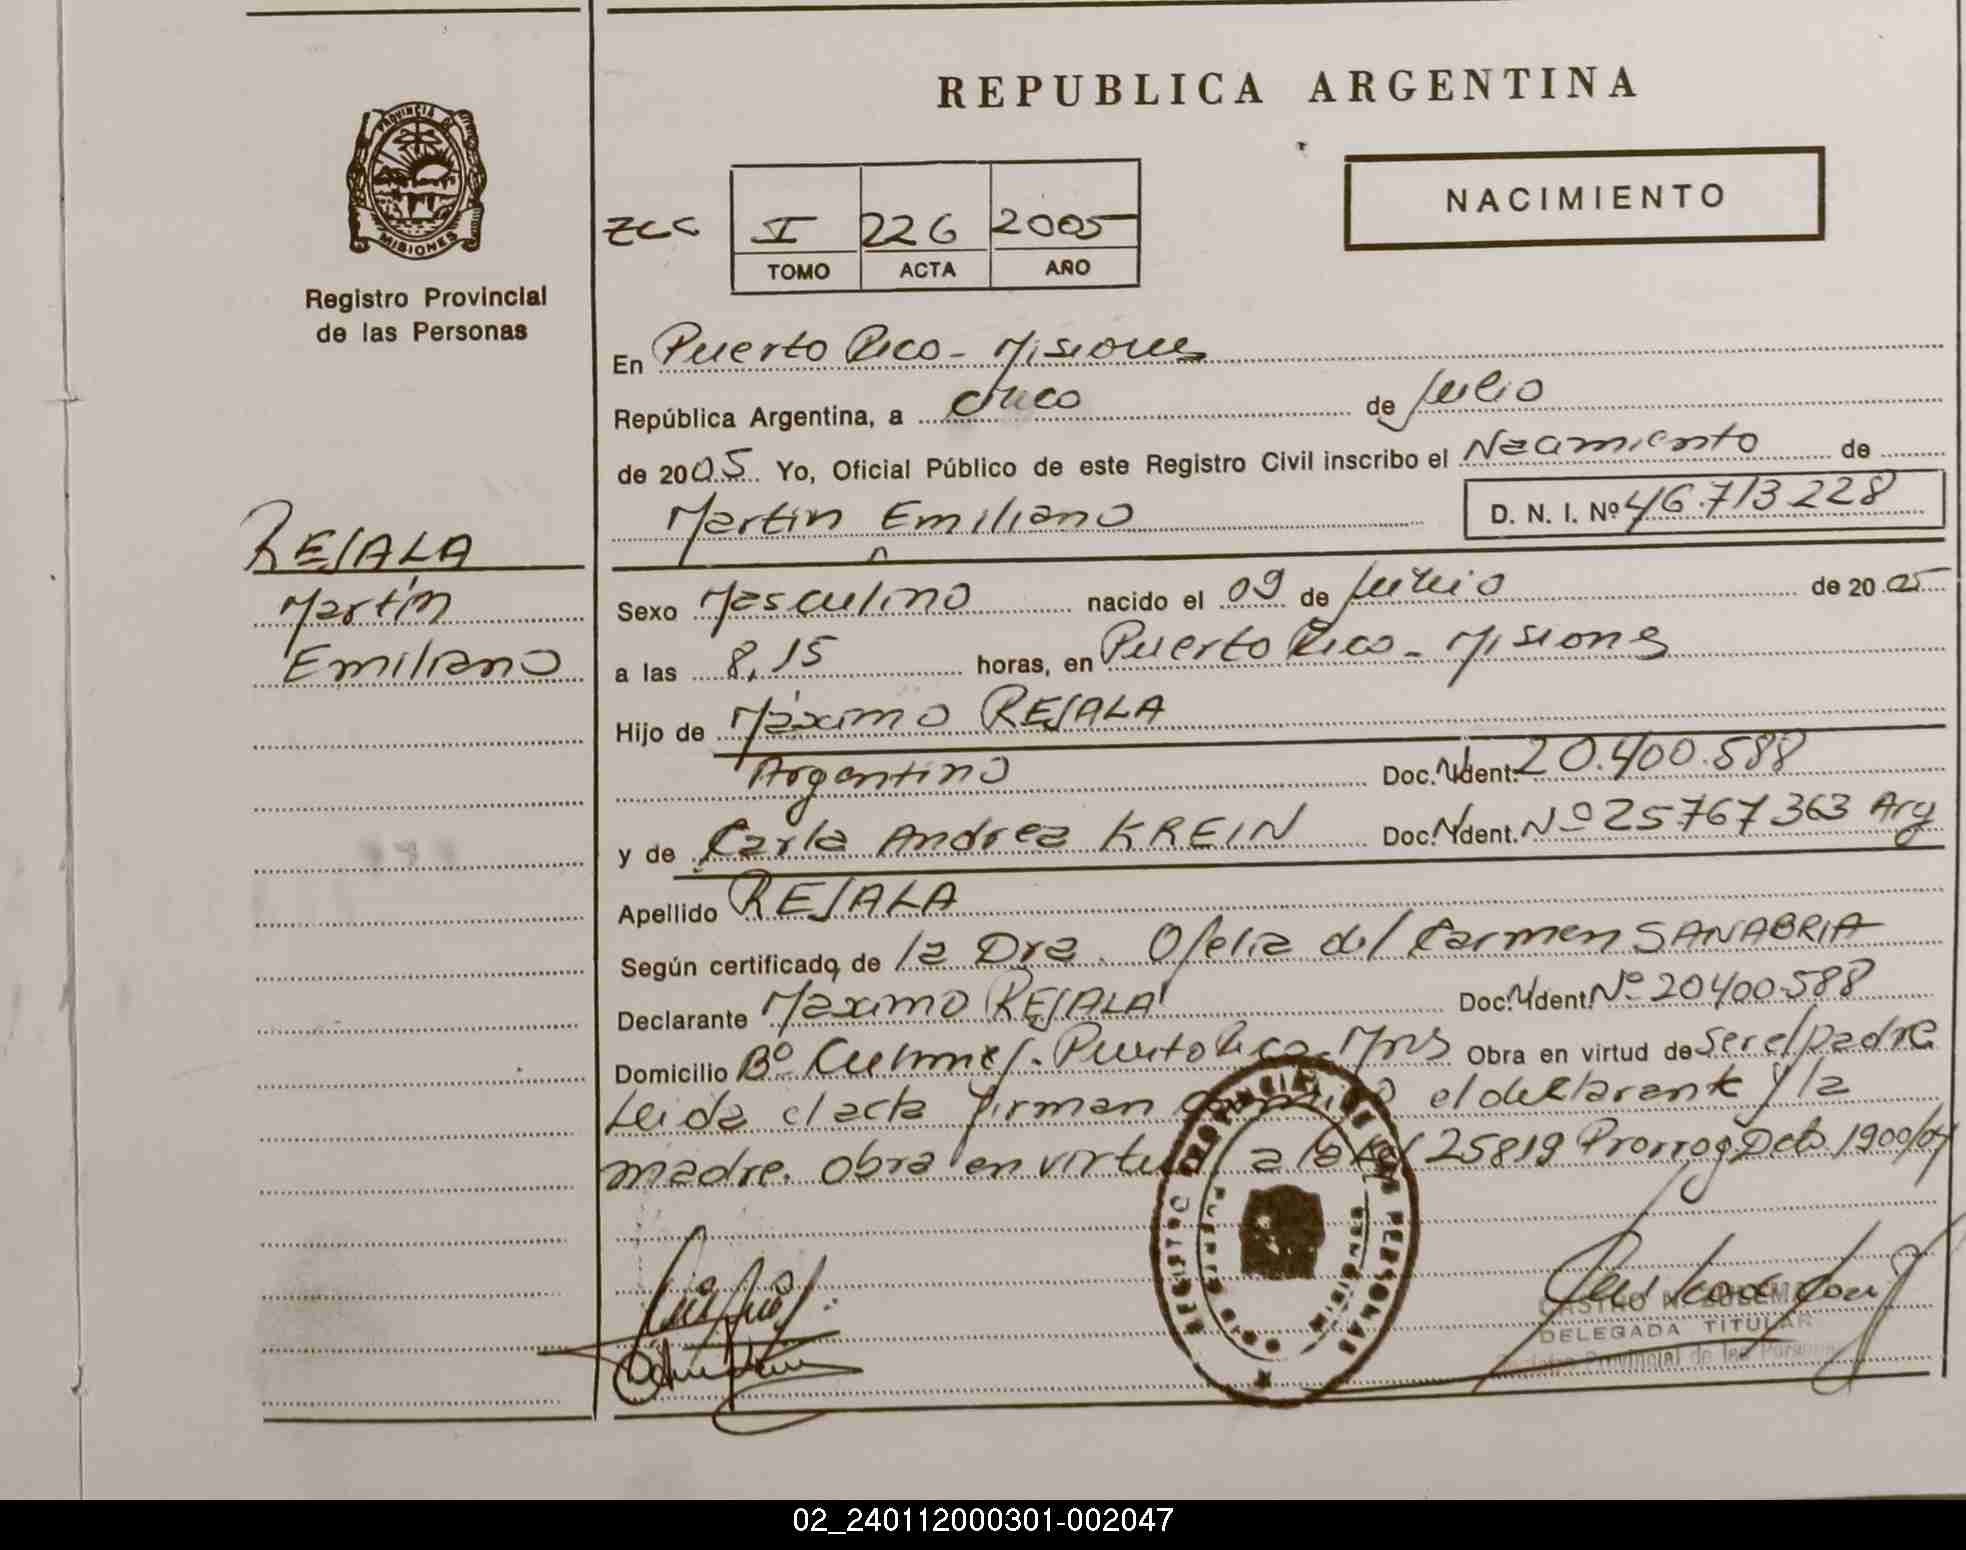 REPUBLICA ARGENTINA
NACIMIENTO
PROVINCIA DE
MISIONES
Registro Provincial
de las Personas
I 226 2005
TOMO ACTA AÑO
En Puerto Rico - Misiones
República Argentina, a cinco de Julio
de 2005 Yo, Oficial Público de este Registro Civil inscribo el Nacimiento de
Martin Emiliano D. N. I. Nº 46.713.228
REJALA
Martín
Emiliano
Sexo Masculino nacido el 09 de Junio de 2005
a las 8,15 horas, en Puerto Rico - Misiones
Hijo de Máximo REJALA
Argentino Doc. Ident. 20.400.588
y de Carla Andrea KREIN Doc. Ident. Nº 25767363 Arg
Apellido REJALA
Según certificado de la Dra. Ofelia del Carmen SANABRIA
Declarante Máximo REJALA Doc. Ident. Nº 20400.588
Domicilio Bº - Puerto Rico - Mns Obra en virtud de ser el padre
Leida el acta firman conmigo el declarante y la
madre. Obra en virtud a la Ley 25819 Prorrog Dcto. 1900/04
REGISTRO PROVINCIAL DE LAS PERSONAS
PUERTO RICO
CASTRO N.
DELEGADA TITULAR
Registro Provincial de las Personas
02_240112000301-002047